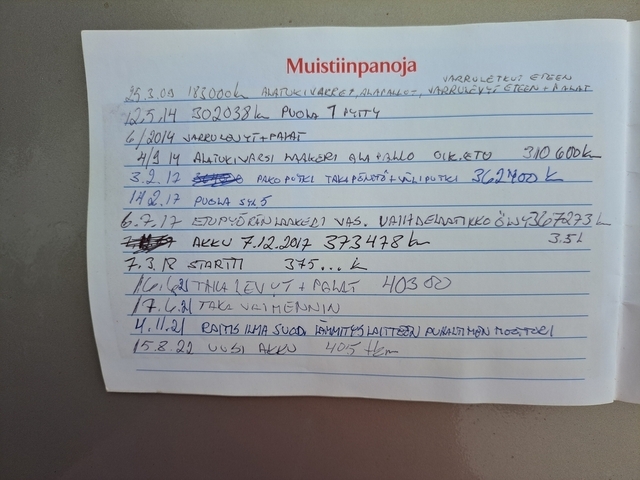 Muistiinpanoja
JARRULETKUT ETEEN
25.3.09 183000k ALATUKIVARRET, ALAPALLOT, JARRULEVYT ETEEN + PALAT
12.5.14 302038k PUOLA 1 SYTTY
6/2014 JARRULEVYT + PALAT
4/9 14 ALATUKIVARSI LAAKERI ALAPALLO OIK. ETU 310 600k
3.2.17 PAKOPUTKI TAKAPÖNTTÖ + VÄLIPUTKI 362400k
14.2.17 PUOLA SYL 5
6.7.17 ETUPYÖRÄNLAAKERI VAS. VAIHDELAATIKKO ÖLJY 367273k
AKKU 7.12.2017 373478k 3.5L
7.3.18 STARTTI 375... k
16.6.21 TAKALEVYT + PALAT 40300
17.6.21 TAKA VAIMENNIN
4.11.21 RAITIS ILMA SUOD. LÄMMITYSLAITTEEN PUHALTIMEN MOOTTORI
15.8.22 UUSI AKKU 405 tkm